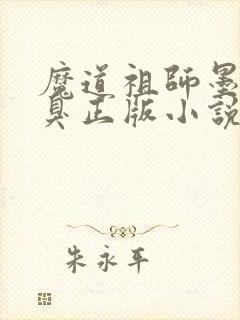 魔道祖師墨
臭正版小說
朱永平